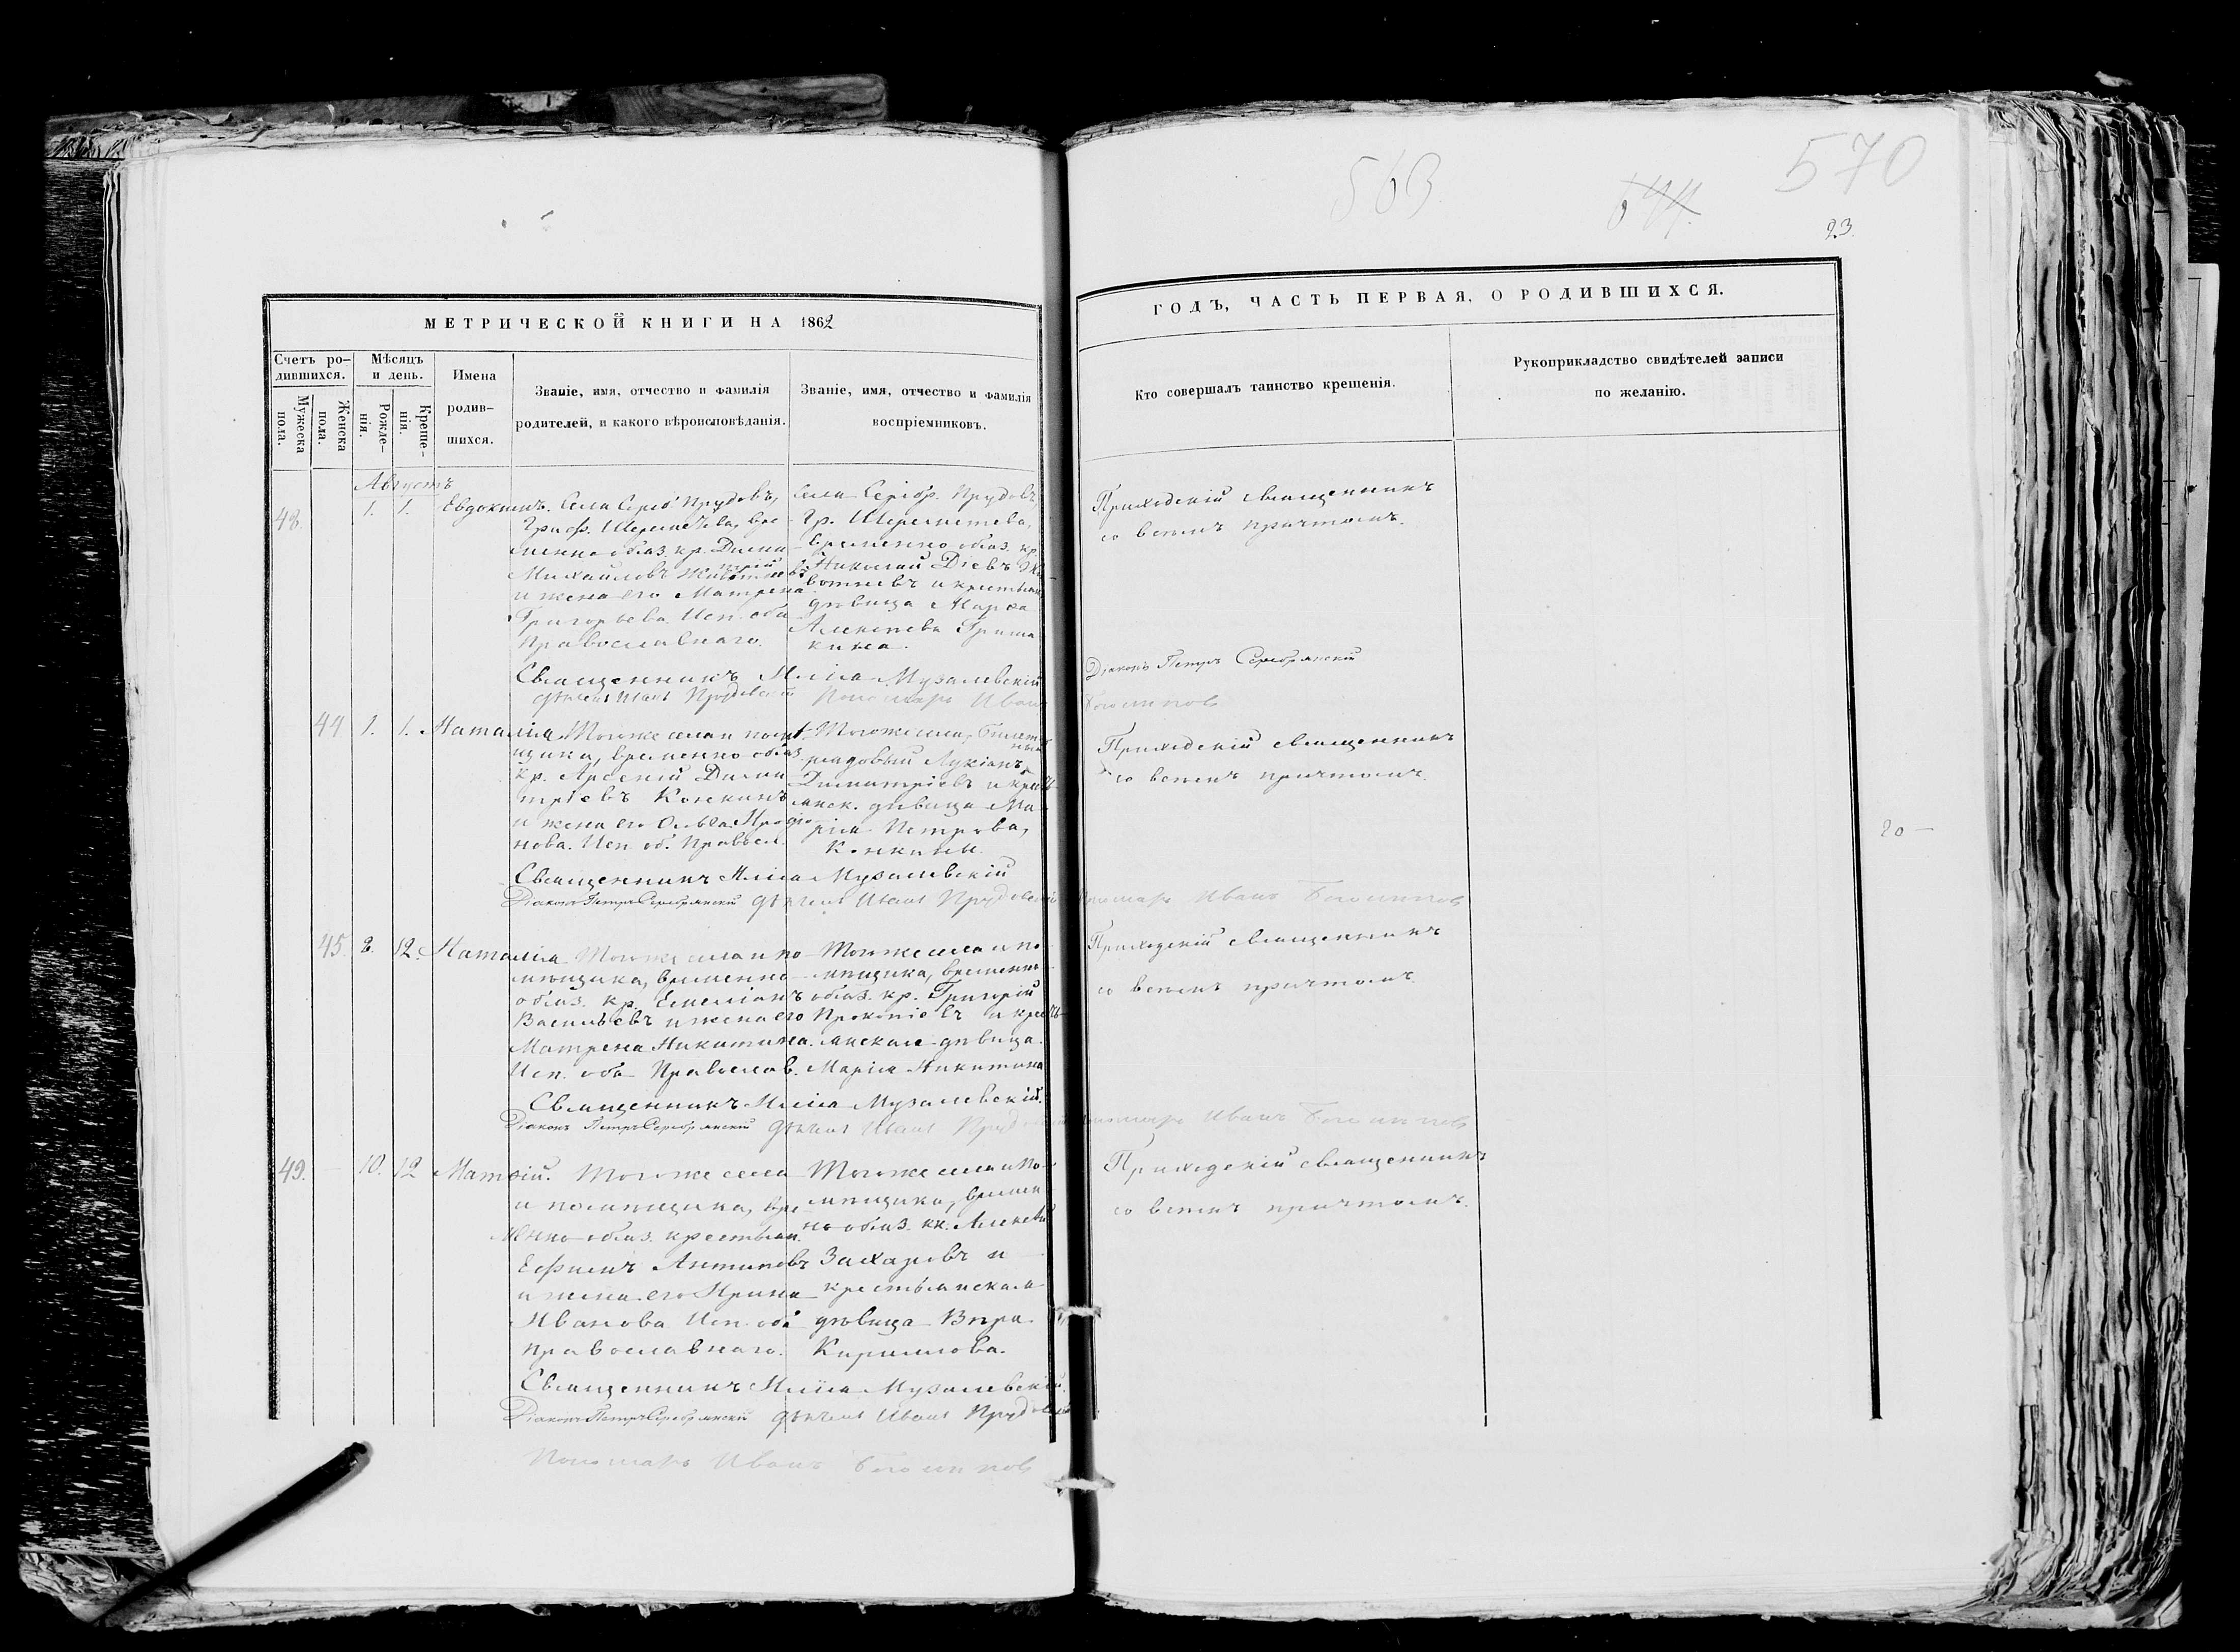 563
570
23.
МЕТРИЧЕСКОЙ КНИГИ НА 1862
ГОДЪ, ЧАСТЬ ПЕРВАЯ, О РОДИВШИХСЯ.
Счетъ ро-
дившихся.
Мужеска
пола.
Женска
пола.
Мѣсяцъ
и день.
Рожде-
нія.
Креще-
нія.
Имена
родив-
шихся.
Званіе, имя, отчество и фамилія
родителей, и какого вѣроисповѣданія.
Званіе, имя, отчество и фамилія
воспріемниковъ.
Кто совершалъ таинство крещенія.
Рукоприкладство свидѣтелей записи
по желанію.
Августъ
48.
1. 1. Евдокимъ.
Села Сереб. Прудовъ,
Граф. Шереметева, вре-
менно обяз. кр. Дими-
трій
Михайловъ
и жена его Матрена
Григорьева. Исп. оба
Православнаго.
Села Серебр. Прудовъ
Гр. Шереметева,
временно обяз. кр.
Николай Діевъ Жи-
вотневъ и крестьян.
дѣвица Марѳа
Алексѣева Гриша-
кина.
Приходскій священникъ
со всѣмъ причтомъ.
Священникъ Илія Музалевскій
Діаконъ Петръ Серебрянскій
Дьячекъ Иванъ Прудовскій
Пономарь Иванъ
44 1. 1. Наталія.
Тогоже села и помѣ-
щика, временно обяз.
кр. Арсеній Дими-
тріевъ Конкинъ
и жена его Ольга
нова. Исп. об. Правосл.
Тогоже села, билет-
ный
рядовый Лукіанъ
Димитріевъ и кресть-
янск. дѣвица Ма-
рія Петрова,
Конкины.
Приходскій священникъ
со всѣмъ причтомъ.
20 —
Священникъ Илія Музалевскій
Діаконъ Петръ Серебрянскій Дьячекъ Иванъ Прудовскій Пономарь Иванъ
45. 8. 12. Наталія
Тогоже села и по-
мѣщика, временно-
обяз. кр. Емеліанъ
Васильевъ и жена его
Матрена Никитина.
Исп. оба Православ.
Тогоже села и по-
мѣщика, временно-
обяз. кр. Григорій
Прокопіевъ и кресть-
янская дѣвица
Марія Никитина
Приходскій священникъ
со всѣмъ причтомъ
Священникъ Илія Музалевскій.
Діаконъ Петръ Серебрянскій Дьячекъ Иванъ Прудовскій Пономарь Иванъ
49. — 10. 12 Матѳій.
Тогоже села
и помѣщика, вре-
менно-обяз. крестьян.
Ефимъ Антиповъ
и жена его Ирина
Иванова Исп. оба
православнаго.
Тогоже села и по-
мѣщика, времен-
но обяз. кр. Алексѣй
Захаровъ и
крестьянская
дѣвица Вѣра
Кириллова.
Приходскій священникъ
со всѣмъ причтомъ.
Священникъ Илія Музалевскій.
Діаконъ Петръ Серебрянскій Дьячекъ Иванъ Прудовскій
Пономарь Иванъ